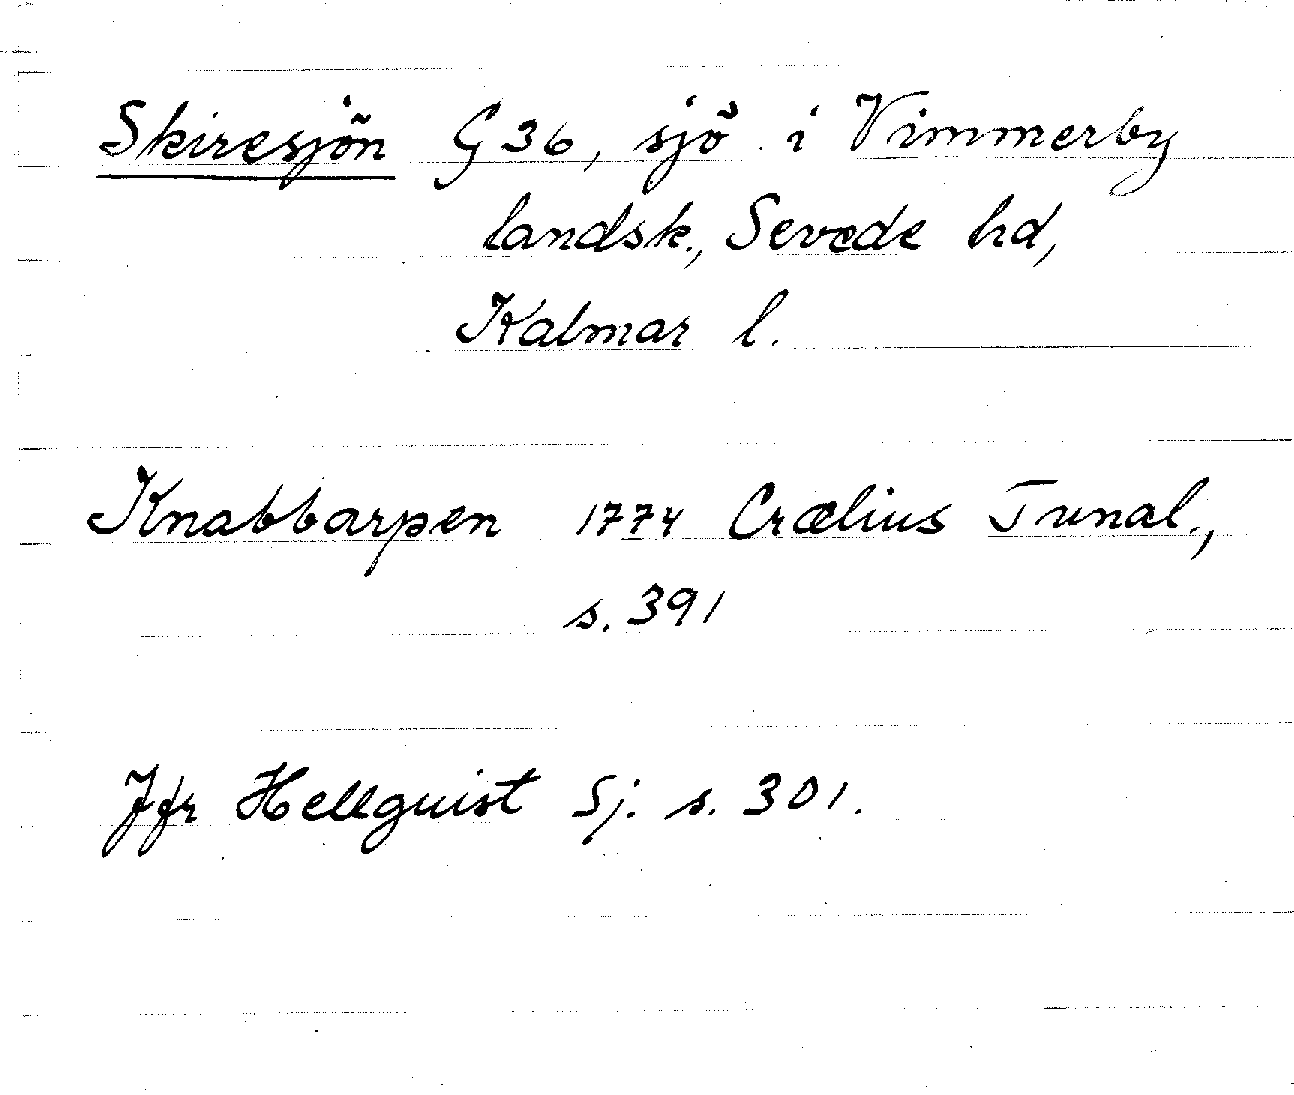 Skiresjön G 36, sjö i Vimmerby
landsk., Sevede hd,
Kalmar l.
Knabbarpen 1774 Crælius Tunal.,
s. 391
Jfr Hellquist Sj. s. 301.